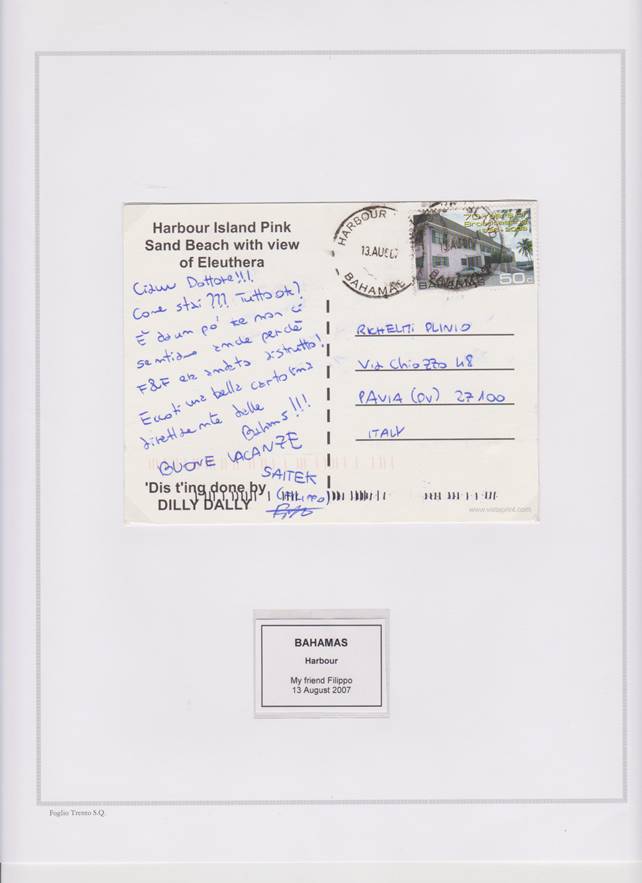 Harbour Island Pink
Sand Beach with view
of Eleuthera
HARBOUR
13.AUG07
BAHAMAS
BAHAMAS 50c
Ciauu Dottore!!!
Come stai??? Tutto ok?
È da un po' che non ci
sentiamo anche perchè
F&F era andato distrutto!
Eccoti una bella cartolina
direttamente dalle
Bahams!!!
BUONE VACANZE
SAITEK
(FILIPPO)
RICHELMI PLINIO
Via Chiozzo 48
PAVIA (PV) 27100
ITALY
'Dis t'ing done by
DILLY DALLY
www.vistaprint.com
BAHAMAS
Harbour
My friend Filippo
13 August 2007
Foglio Trento S.Q.